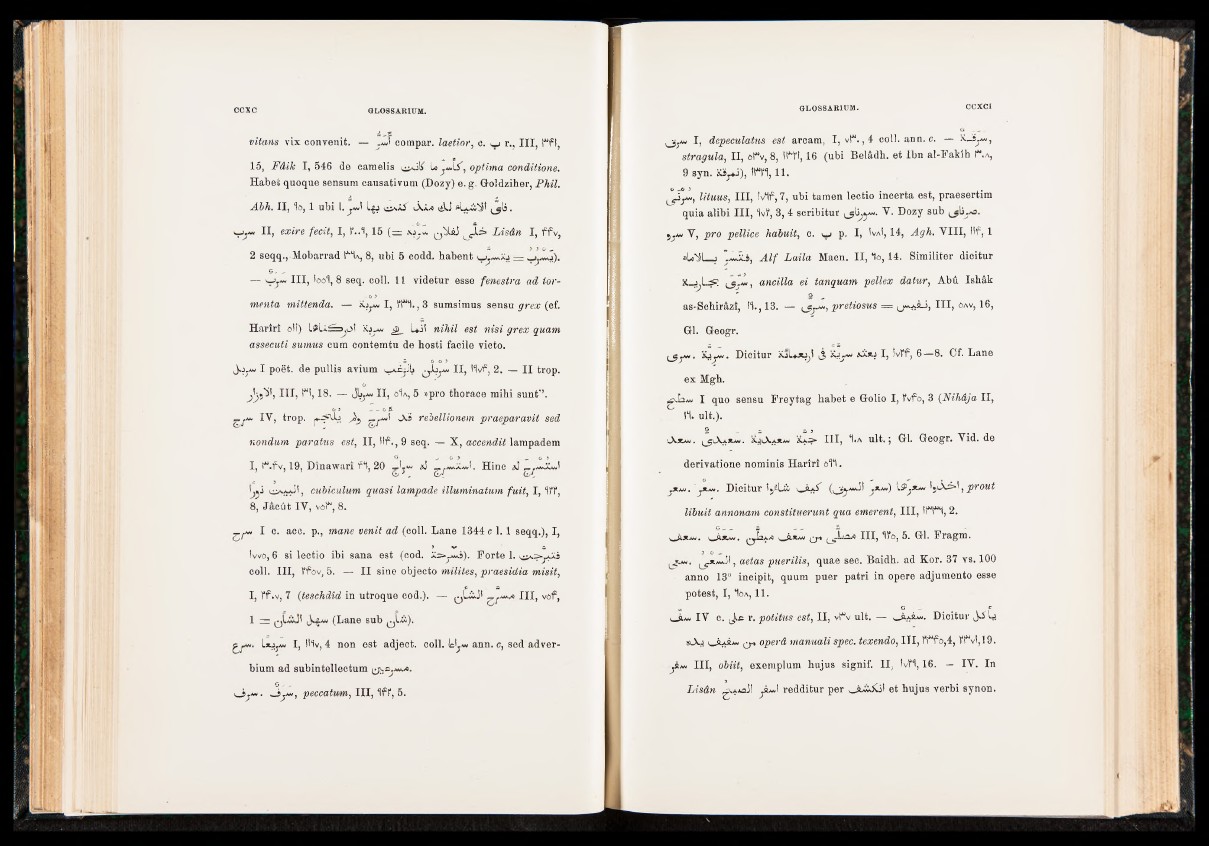 CCXC GLOSSARIUM.
vitans vix convenit. — أَسَرُّ compar. laetior, c. ب r., III, ١٣۴١,
15, Fâïk I, 546 de camelis كانت ما كأسرّ, optima conditione.
Habes quoque sensum causativum (Dozy) e. g. Goldziher, Phil.
Abh. II, ٦٥, 1 ubi l. فاى الاشياء لك منذ كنت بها اسرّ.
سرب II, exire fecit, I, ٢٠٠٦, 15 (= خلّى لفلان سربه Lisân I, ۴۴٧,
2 seqq., Mobarrad ٣٦٨, 8, ubi 5 codd. habent
— سرب III, ١٥٥٦, 8 seq. coll. 11 videtur esse fenestra ad tor-
menta mittenda. — سربة I, ٢٣٦٠, 3 sumsimus sensu grex (cf.
Harîrî ٥١١) nihil est nisi grex quam
assecuti sumus cum contemtu de hosti facile victo.
سربل I poët. de pullis avium II, ١٦٧۴, 2. — II trop.
III, ٣٦١, 18. — سربال II, ٥٦٨, 5 »pro thorace mihi sunt”.
سرج IV, trop. rebellionem praeparavit sed
nondum paratus est, II, ١١۴٠, 9 seq. — X, accendit lampadem
I, ٣٠۴٧, 19, Dînawarî ۴٦, 20 استسرج له سراج. Hinc استسرج له
البيت نورا, cubiculum quasi lampade illuminatum fuit, I, ٦٢٢,
8, Jâcût IV, ٧٥٣, 8.
سرح I c. acc. p., mane venit ad (coll. Lane 1344 c l. 1 seqq.), I,
١٧٧٥, 6 si lectio ibi sana est (cod. فسرحته). Forte l.
coll. III, ٢۴٥٧, 5. — II sine objecto milites, praesidia misit,
I, ٢۴٠٧, 7 (teschdîd in utroque cod.). — مسرح الشأن III, ٧٥۴,
1 = سهل الشأن (Lane sub شأن).
سرع. سريعا I, ١١٦٧, 4 non est adject. coll. سراعا ann. c, sed adver-
bium ad subintellectum مسرعين.
سرف. سرف, peccatum, III, ٦۴٢, 5.
GLOSSARIUM. CCXCI
سرق I, depeculatus est arcam, I, ٧٣٠, 4 coll. ann. c. — سرقة,
stragula, II, ٥٣٧, 8, ١١٣٢١, 16 (ubi Belâdh. et Ibn al-Fakîh ٣٠٨,
9 syn. نمرقة), ١١٣٢٦, 11.
سرنى, lituus, III, ١٧٦۴, 7, ubi tamen lectio incerta est, praesertim
quia alibi III, ١٦٧٢, 3, 4 scribitur سورناى. V. Dozy sub صرناى.
سرو V, pro pellice habuit, c. ب p. I, ١٧٨١, 14, Agh. VIII, ١١۴, 1
فتسرّ بالاماء, Alf Laila Macn. II, ٦٥, 14. Similiter dicitur
سُرِّى بجارية, ancilla ei tanquam pellex datur, Abû Ishâk
as-Schirâzî, ١٦٠, 13. — سرىّ, pretiosus = نفيس, III, ٥٨٧, 16,
Gl. Geogr.
سرى. سرية. Dicitur بعثه سرية فى اربعمائة I, ١٧٢۴, 6—8. Cf. Lane
ex Mgh.
سطع I quo sensu Freytag habet e Golio I, ٢٧۴٥, 3 (Nihâja II,
١٦٠ ult.).
سعد. سعيدى. جبة سعيدية III, ٦٠٨ ult.; Gl. Geogr. Vid. de
derivatione nominis Harîrî ٥٦٦.
سعر. سعر. Dicitur اخذوا سعرها (سعر السوق) كيف شاءوا, prout
libuit annonam constituerunt qua emerent, III, ١٣٣٦, 2.
سعف. سعف. مصلّى من سعف مبطّن III, ٦٢٥, 5. Gl. Fragm.
سعى. السعى, aetas puerilis, quae sec. Baidh. ad Kor. 37 vs. 100
anno 13º incipit, quum puer patri in opere adjumento esse
potest, I, ٦٥٨, 11.
سف IV c. على r. potitus est, II, ٧٣٧ ult. — سفيف. Dicitur يأكل
من سفيف يده operâ manuali spec. texendo, III, ٢٣۴٥, 4, ٢٣٧١, 19.
سفر III, obiit, exemplum hujus signif. II, ١٧٢٦, 16. — IV. In
Lisân اسفر الصبح redditur per انكشف et hujus verbi synon.